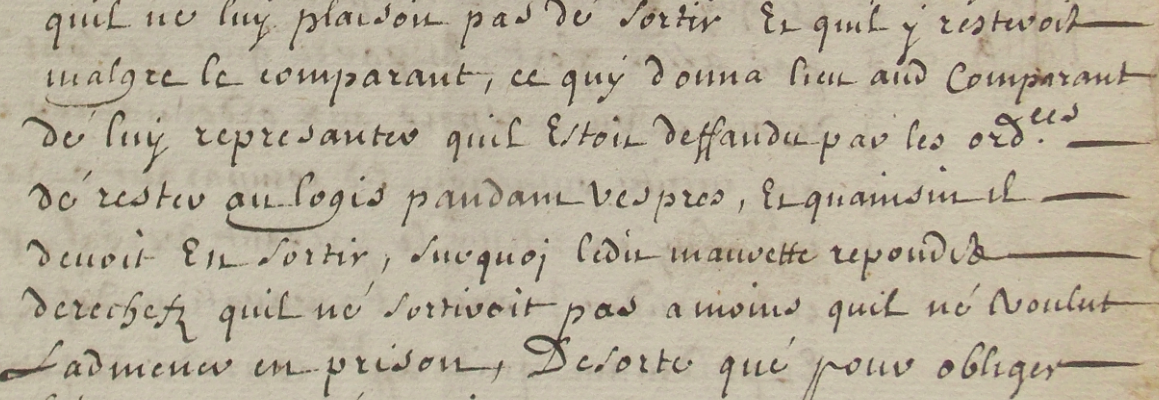 quil ne luy plaisoit pas de sortir Et quil y resteroit
malgre le comparant, ce quy donna lieu aud Comparant
dé luy represanter quil Estoit deffandu par les ord.ces
dé rester au logis pandant vespres, Et quainsin il
devoit En sortir, surquoj ledit mauvette repondit
derechef quil né sortiroit pas a moins quil né voulut
Ladmener en prison, Desorte qué pour obliger